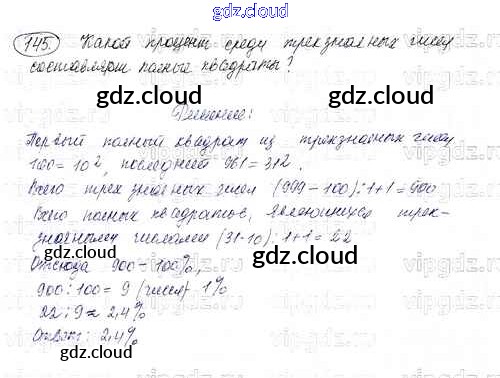 gdz.cloud
145. Какой процент среди трехзначных чисел
составляют полные квадраты?
gdz.cloud
gdz.cloud
Решение:
Первый полный квадрат из трехзначных чисел
100 = 10², последний 961 = 31².
gdz.cloud
Всего трехзначных чисел (999 - 100) : 1 + 1 = 900
Всего полных квадратов, являющихся трех-
значными числами (31-10) : 1 + 1 = 22
Отсюда 900 - 100%,
gdz.cloud
900 : 100 = 9 (чисел) - 1%
22 : 9 ≈ 2,4%
Ответ: 2,4%
gdz.cloud